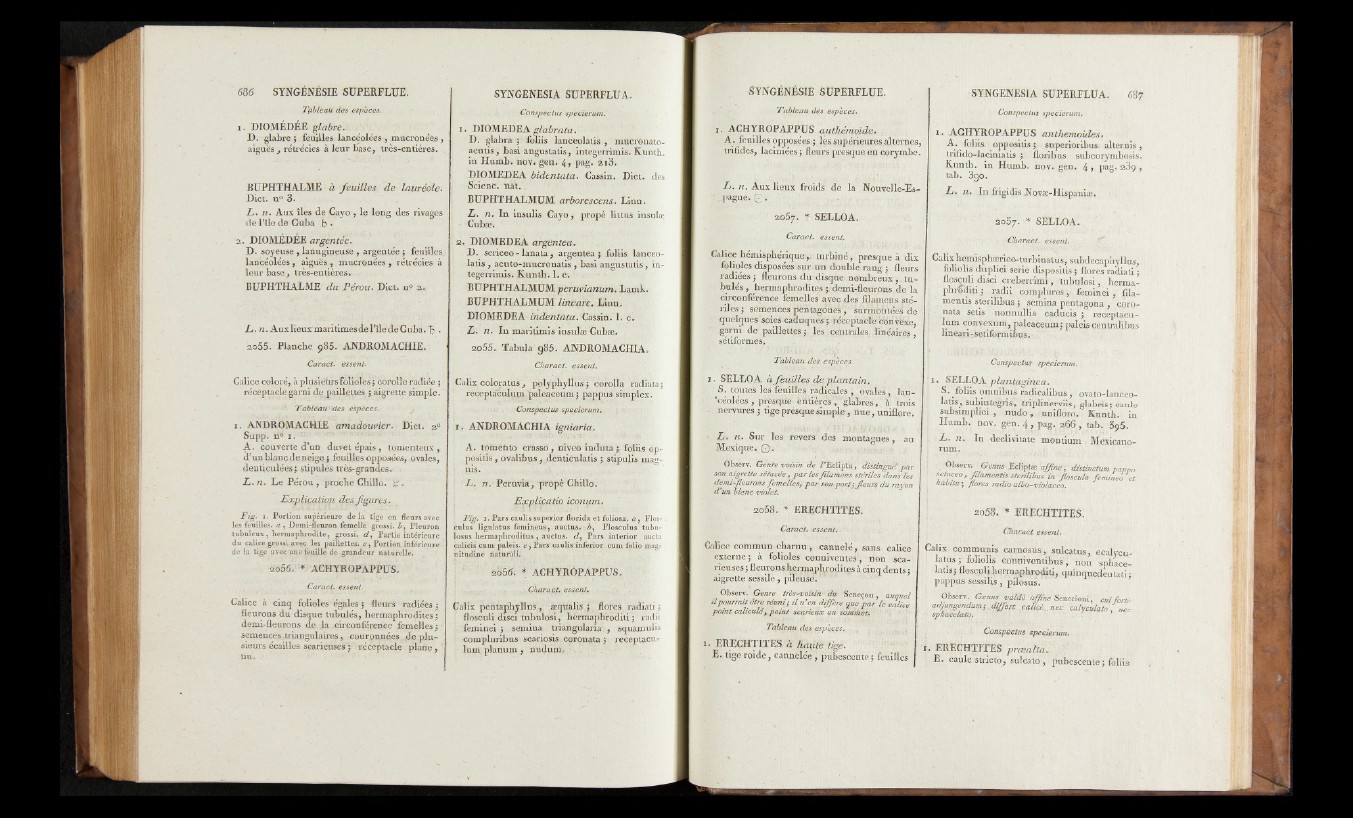 686 SYNGÉNÉSIE SUPERFLUE.
Tableau des espèces.
1. DIOMÉDÉE glabre.
D. glabre ; feuilles lancéolées, mucronées,
aiguës, rétrécies à leur base, très-entières.
BUPHTHALME à feuilles de lauréole.
Dict. n° 3.
L. n. Aux îles de Cayo, le long des rivages
de l'île de Cuba ♄.
2. DIOMÉDÉE argentée.
D. soyeuse, lanugineuse, argentée ; feuilles
lancéolées, aiguës, mucronées, rétrécies à
leur base, très-entières.
BUPHTHALME du Pérou. Dict. n° 2.
L. n. Aux lieux maritimes de l'île de Cuba. ♄.
2055. Planche 985. ANDROMACHIE.
Caract. essent.
Calice coloré, à plusieurs folioles ; corolle radiée ;
réceptacle garni de paillettes ; aigrette simple.
Tableau des espèces.
1. ANDROMACHIE amadouvier. Dict. 2e
Supp. n° 1.
A. couverte d'un duvet épais, tomenteux,
d'un blanc de neige ; feuilles opposées, ovales,
denticulées ; stipules très-grandes.
L. n. Le Pérou, proche Chillo.
Explication des figures.
Fig. 1. Portion supérieure de la tige en fleurs avec
les feuilles. a, Demi-fleuron femelle grossi. b, Fleuron
tubuleux, hermaphrodite, grossi. d, Partie intérieure
du calice grossi avec les paillettes. e, Portion inférieure
de la tige avec une feuille de grandeur naturelle.
2056. * ACHYROPAPPUS.
Caract. essent.
Calice à cinq folioles égales ; fleurs radiées ;
fleurons du disque tubulés, hermaphrodites ;
demi-fleurons de la circonférence femelles ;
semences triangulaires, couronnées de plu-
sieurs écailles scarieuses ; réceptacle plane,
nu.
SYNGENESIA SUPERFLUA.
Conspectus specierum.
1. DIOMEDEA glabrata.
D. glabra ; foliis lanceolatis, mucronato-
acutis, basi angustatis, integerrimis. Kunth.
in Humb. nov. gen. 4, pag. 213.
DIOMEDEA bidentata. Cassin. Dict. des
Scienc. nat.
BUPHTHALMUM arborescens. Linn.
L. n. In insulis Cayo, propè littus insulæ
Cubæ.
2. DIOMEDEA argentea.
D. sericeo-lanata, argentea ; foliis lanceo-
latis, acuto-mucronatis, basi angustatis, in-
tegerrimis. Kunth. l. c.
BUPHTHALMUM peruvianum. Lamk.
BUPHTHALMUM lineare. Linn.
DIOMEDEA indentata. Cassin. l. c.
L. n. In maritimis insulæ Cubæ.
2055. Tabula 985. ANDROMACHIA.
Charact. essent.
Calix coloratus, polyphyllus ; corolla radiata ;
receptaculum paleaceum ; pappus simplex.
Conspectus specierum.
1. ANDROMACHIA igniaria.
A. tomento crasso, niveo induta ; foliis op-
positis, ovalibus, denticulatis ; stipulis mag-
nis.
L. n. Peruvia, propè Chillo.
Explicatio iconum.
Fig. 1. Pars caulis superior florida et foliosa. a, Flos-
culus ligulatus femineus, auctus. b, Flosculus tubu-
losus hermaphroditus, auctus. d, Pars interior aucta
calicis cum paleis. e, Pars caulis inferior cum folio mag-
nitudine naturali.
2056. * ACHYROPAPPUS.
Charact. essent.
Calix pentaphyllus, æqualis ; flores radiati ;
flosculi disci tubulosi, hermaphroditi ; radii
feminei ; semina triangularia, squamulis
compluribus scariosis coronata ; receptacu-
lum planum, nudum.
SYNGÉNÉSIE SUPERFLUE.
Tableau des espèces.
1. ACHYROPAPPUS anthémoïde.
A. feuilles opposées ; les supérieures alternes,
trifides, laciniées ; fleurs presque en corymbe.
L. n. Aux lieux froids de la Nouvelle-Es-
pagne.
2057. * SELLOA.
Caract. essent.
Calice hémisphérique, turbiné, presque à dix
folioles disposées sur un double rang ; fleurs
radiées ; fleurons du disque nombreux, tu-
bulés, hermaphrodites ; demi-fleurons de la
circonférence femelles avec des filamens sté-
riles ; semences pentagones, surmontées de
quelques soies caduques ; réceptacle convexe,
garni de paillettes ; les centrales linéaires,
sétiformes.
Tableau des espèces.
1. SELLOA à feuilles de plantain.
S. toutes les feuilles radicales, ovales, lan-
céolées, presque entières, glabres, à trois
nervures ; tige presque simple, nue, uniflore.
L. n. Sur les revers des montagnes, au
Mexique. ☉.
Observ. Genre voisin de l'Eclipta, distingué par
son aigrette sétacée, par les filamens stériles dans les
demi-fleurons femelles, par son port ; fleurs du rayon
d'un blanc violet.
2058. * ERECHTITES.
Caract. essent.
Calice commun charnu, cannelé, sans calice
externe ; à folioles conniventes, non sca-
rieuses ; fleurons hermaphrodites à cinq dents ;
aigrette sessile, pileuse.
Observ. Genre très-voisin du Seneçon, auquel
il pourroit être réuni ; il n'en diffère que par le calice
point caliculé, point scarieux au sommet.
Tableau des espèces.
1. ERECHTITES à haute tige.
E. tige roide, cannelée, pubescente ; feuilles
SYNGENESIA SUPERFLUA. 687
Conspectus specierum.
1. ACHYROPAPPUS anthemoides.
A. foliis oppositis ; superioribus alternis,
trifido-laciniatis ; floribus subcorymbosis.
Kunth. in Humb. nov. gen. 4, pag. 259,
tab. 390.
L. n. In frigidis Novæ-Hispaniæ.
2057. * SELLOA.
Charact. essent.
Calix hemisphærico-turbinatus, subdecaphyllus,
foliolis duplici serie dispositis ; flores radiati ;
flosculi disci creberrimi, tubulosi, herma-
phroditi ; radii complures, feminei, fila-
mentis sterilibus ; semina pentagona, coro-
nata setis nonnullis caducis ; receptacu-
lum convexum, paleaceum ; paleis centralibus
lineari-setiformibus.
Conspectus specierum.
1. SELLOA plantaginea.
S. foliis omnibus radicalibus, ovato-lanceo-
latis, subintegris, triplinerviis, glabris ; caule
subsimplici, nudo, unifloro. Kunth. in
Humb. nov. gen. 4, pag. 266, tab. 395.
L. n. In declivitate montium Mexicano-
rum.
Observ. Genus Ecliptæ affine, distinctum pappo
setaceo, filamentis sterilibus in flosculo femineo et
habitu ; flores radio albo-violaceo.
2058. * ERECHTITES.
Charact. essent.
Calix communis carnosus, sulcatus, ecalycu-
latus ; foliolis conniventibus, non sphace-
latis ; flosculi hermaphroditi, quinquedentati ;
pappus sessilis, pilosus.
Observ. Genus valdè affine Senecioni, cui fors-
adjungendum ; differt calice nec calyculato, nec
sphacelato.
Conspectus specierum.
1. ERECHTITES præalta.
E. caule stricto, sulcato, pubescente ; foliis